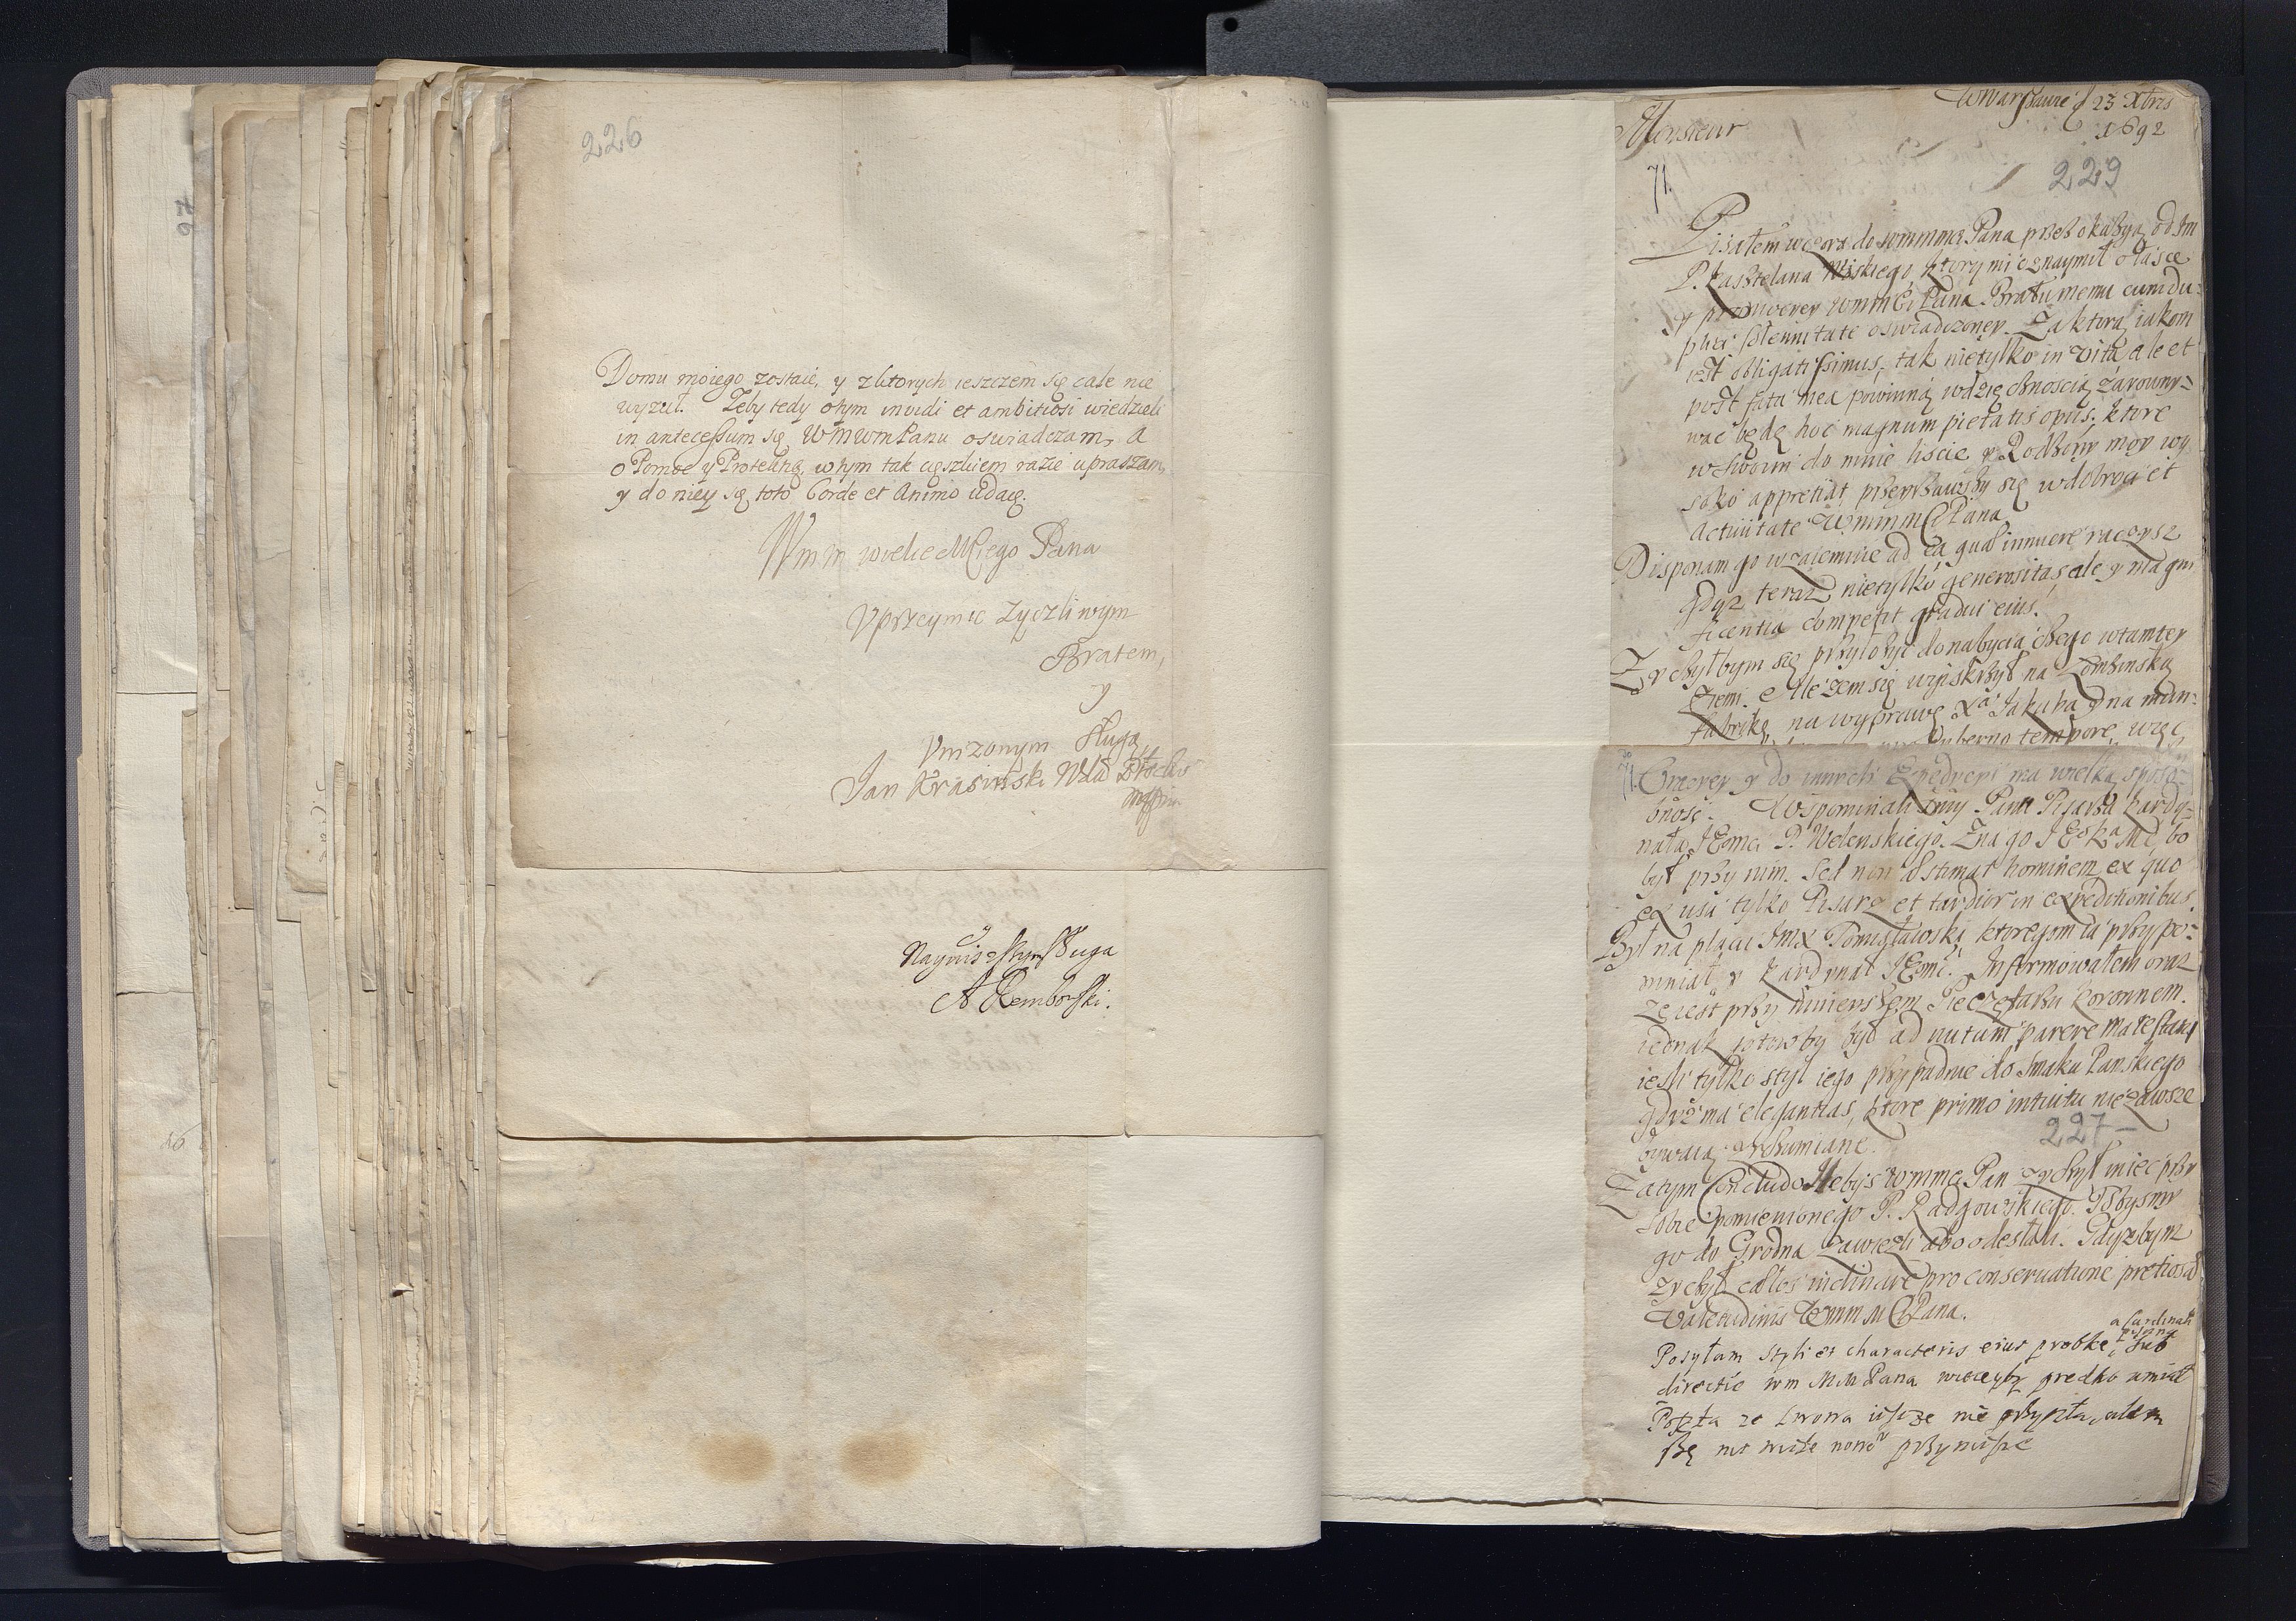 226
Domu moiego zostaie, y z ktorych ieszczem się cale nie
wyzuł. Zeby tedy otym invidi et ambitiosi wiedzieli
in antecessum się WMWmPanu oswiadczam, A
o Pomoc y Protekcyą wtym tak cięszkiem razie upraszam,
y do niey się toto Corde et Animo udaię.
Wm m wielce MCiego Pana
Vprzeymie zyczliwym
Bratem,
y
Vnizonym Sługą
Jan Krasinski
Nayniszszym Sługa
A Remborski.
Wwarszawie d 23 Xbris
1692
Monsieur
71.
229
Pisałem wczora do wmmmci Pana przes okazyą od Jm
P. kasztelana Wiskiego, ktory mi oznaymił o łasce
y promocyey wmmCi Pana Bratu memu cum du-
plici solennitate oswiadczoney. Za ktorą iakom
iest obligatissimus, tak nietylko in vita ale et
post fata mea powinną wdzięcznoscią zarowny-
wać będę hoc magnum pietatis opus. ktore
wswoim do mnie liscie y Rodzony moy wy
soko appretiat, przeyrzawszy się wdobroci et
Actiuitate WmmmCi Pana
Disponam go wzaiemnie ad ea quae innuere raczysz
gdyz teraz nietylko generositas ale y magni
ficentia competit gradui eius.
Zyczyłbym się przyłozyc do nabycia czego wtamtey
Ziemi. Ale zem się na Łomzinską
fabrykę, na wyprawę Xa Jakuba y na mun-
tempore, więc
71. y do innych Expedycyi ma wielką sposo-
bnosc. Wspominali Pana Pisarza kardy-
nała JEmci P. Welenskiego. Zna go JEo Kr Mc, bo
był przy nim. Sed non aestimat hominem ex quo
ex usu tylko Pisarz et tardior in expeditionibus.
Był na placu Jmx Pomysławski, ktoregom ia przypo-
mniał y kardynał JEmci. Informowałem oraz
ze iest przy mnieyszem Pieczętarzu koronnem.
iednak gotowby był ad nutum parere Maiestatis
iesli tylko styl iego przypadnie do smaku Panskiego
gdyz ma elegantias, ktore primo intuitu nie zawsze
227
bywaią zrozumiane.
Zatym Concludo zebys wmmci Pan zyczył miec przy
sobie pomienionego P. Radgowskiego. Tobysmy
go do Grodna zawiezli abo odesłali. Gdyzbym
zyczył calles inclinare pro conseruatione pretiosae
Valetudinis WmmMCiPana.
Posyłam styli et characteris eius probkę, a Cardinali
sub
directie wm MM Pana prędko umiał
Poczta ze Lwowa iescze nie przyszła, alem
nie przyniesie